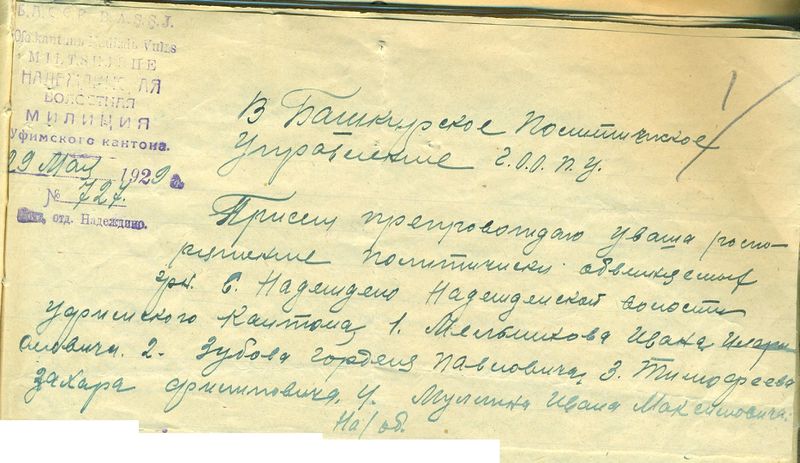 Б.А.С.С.Р. B.A.S.S.J.
MILTSIJENE
НАДЕЖДИНСКАЯ
ВОЛОСТНАЯ
МИЛИЦИЯ
Уфимского кантона.
29 Мая 1929
№ 727.
отд. Надеждино.
В Башкирское Политическое
Управление Г.О.П.У.
При сем препровождаю уваша распо-
ряжение политически
гр. С. Надеждено Надежденской волости
Уфимского Кантона, 1. Мельникова Ивана Илари
оновича. 2. Зубова Гордея Павловича, 3. Тимофеева
Захара Филиповича, 4. Муллина Ивана Максимовича.
На/об.